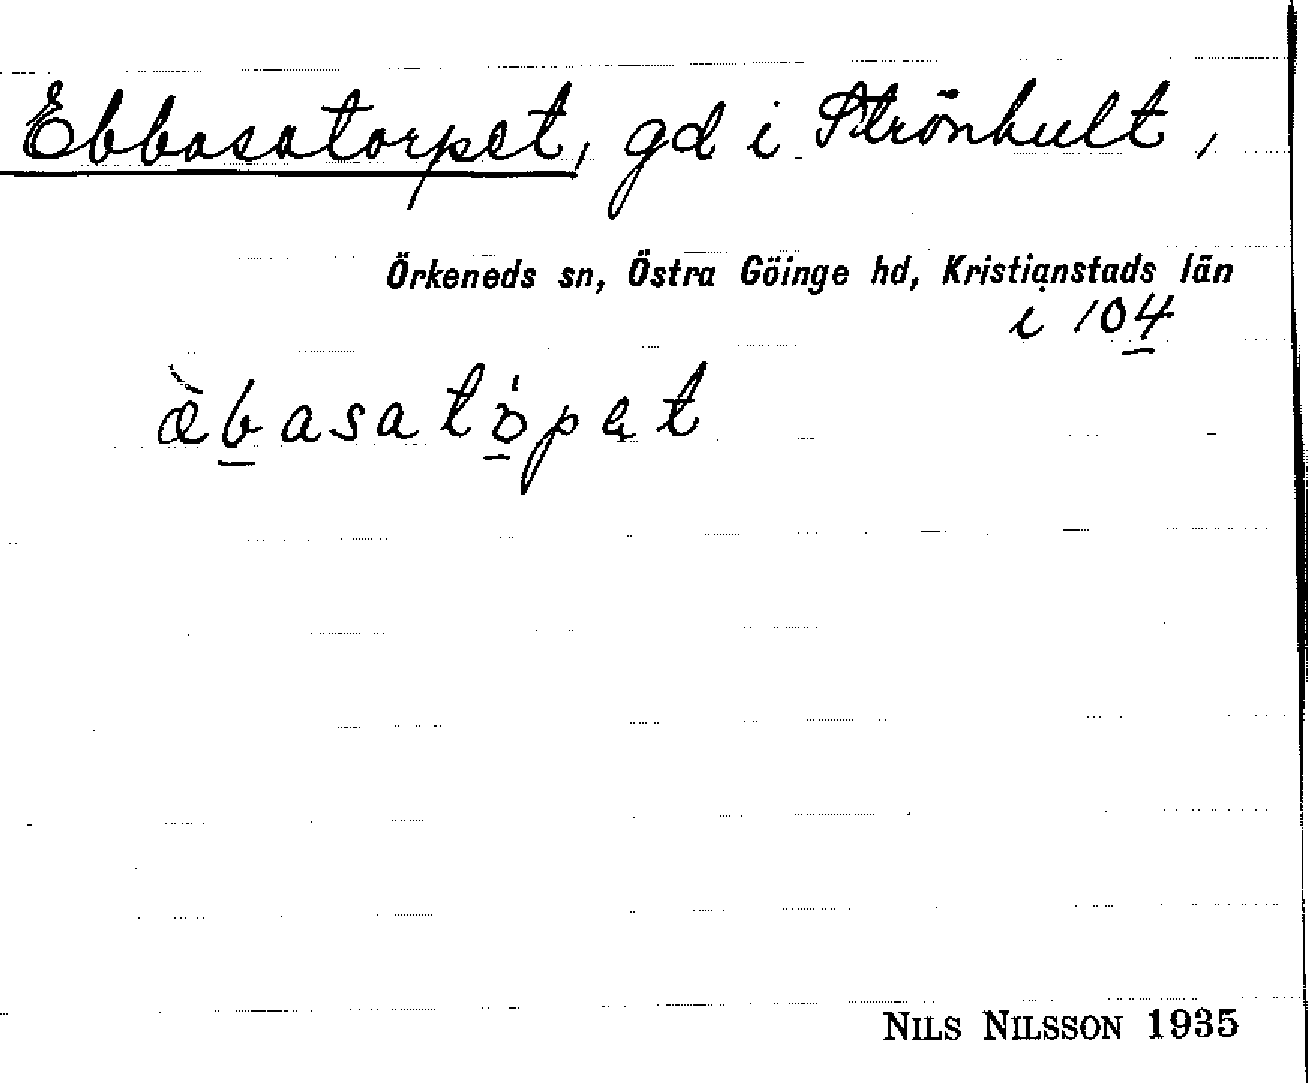 Ebbasatorpet, gd i Strönhult,
Örkeneds sn, Östra Göinge hd, Kristianstads län
i 104
æ̀b̲asatö̲pet
NILS NILSSON 1935